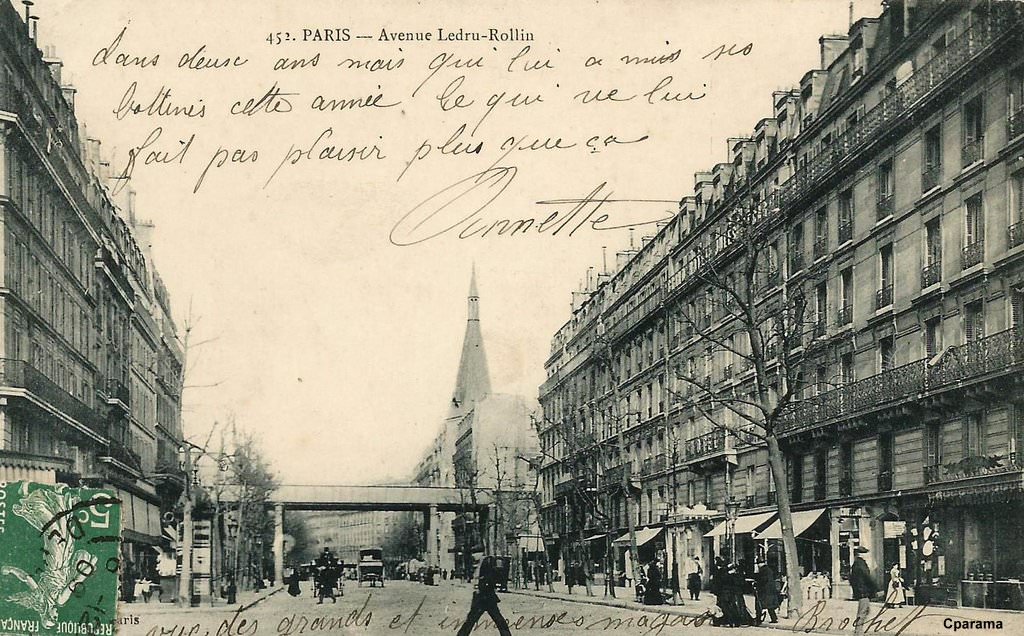 452. PARIS — Avenue Ledru-Rollin
dans deux ans mais qui lui a mis ses
bottines cette année ce qui ne lui
fait pas plaisir plus que ça
POSTES
5c
RÉPUBLIQUE FRANÇAISE
aris
vue des grands et immenses magasins Brochet
Cparama